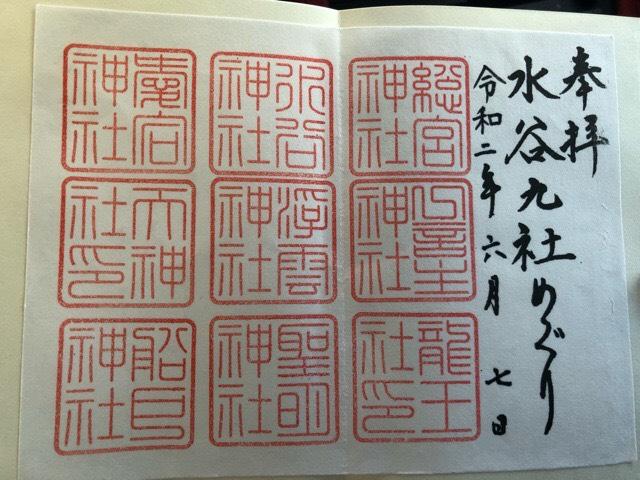 奉拝
水谷九社めぐり
令和二年六月七日
總宮神社
神社
龍王社印
水谷神社
浮雲神社
聖明神社
愛宕神社
天神社印
神社